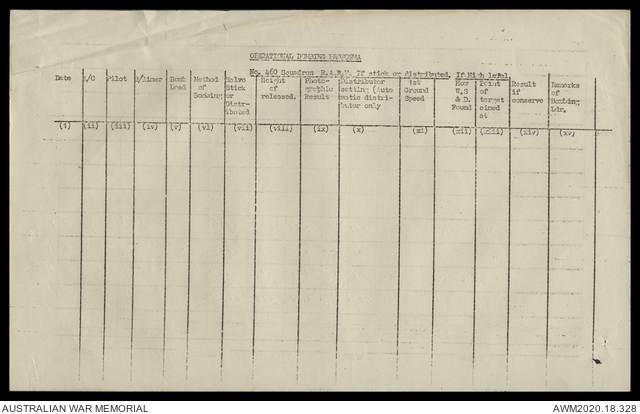 OPERATIONAL BOMBING PROFORMA
No. 460 Squadron R.A.A.F. If stick or distributed. If High level.
Date A/C Pilot B/Aimer Bomb Load Method of Bombing Salvo Stick or Distributed Height of released. Photographic Result Distributor setting (Auto matic distributor only 1st Ground Speed How W.S & D. Found Point of target aimed at Result if conserve Remarks of Bombing Ldr.
(i) (ii) (iii) (iv) (v) (vi) (vii) (viii) (ix) (x) (xi) (xii) (xiii) (xiv) (xv)
AUSTRALIAN WAR MEMORIAL
AWM2020.18.328